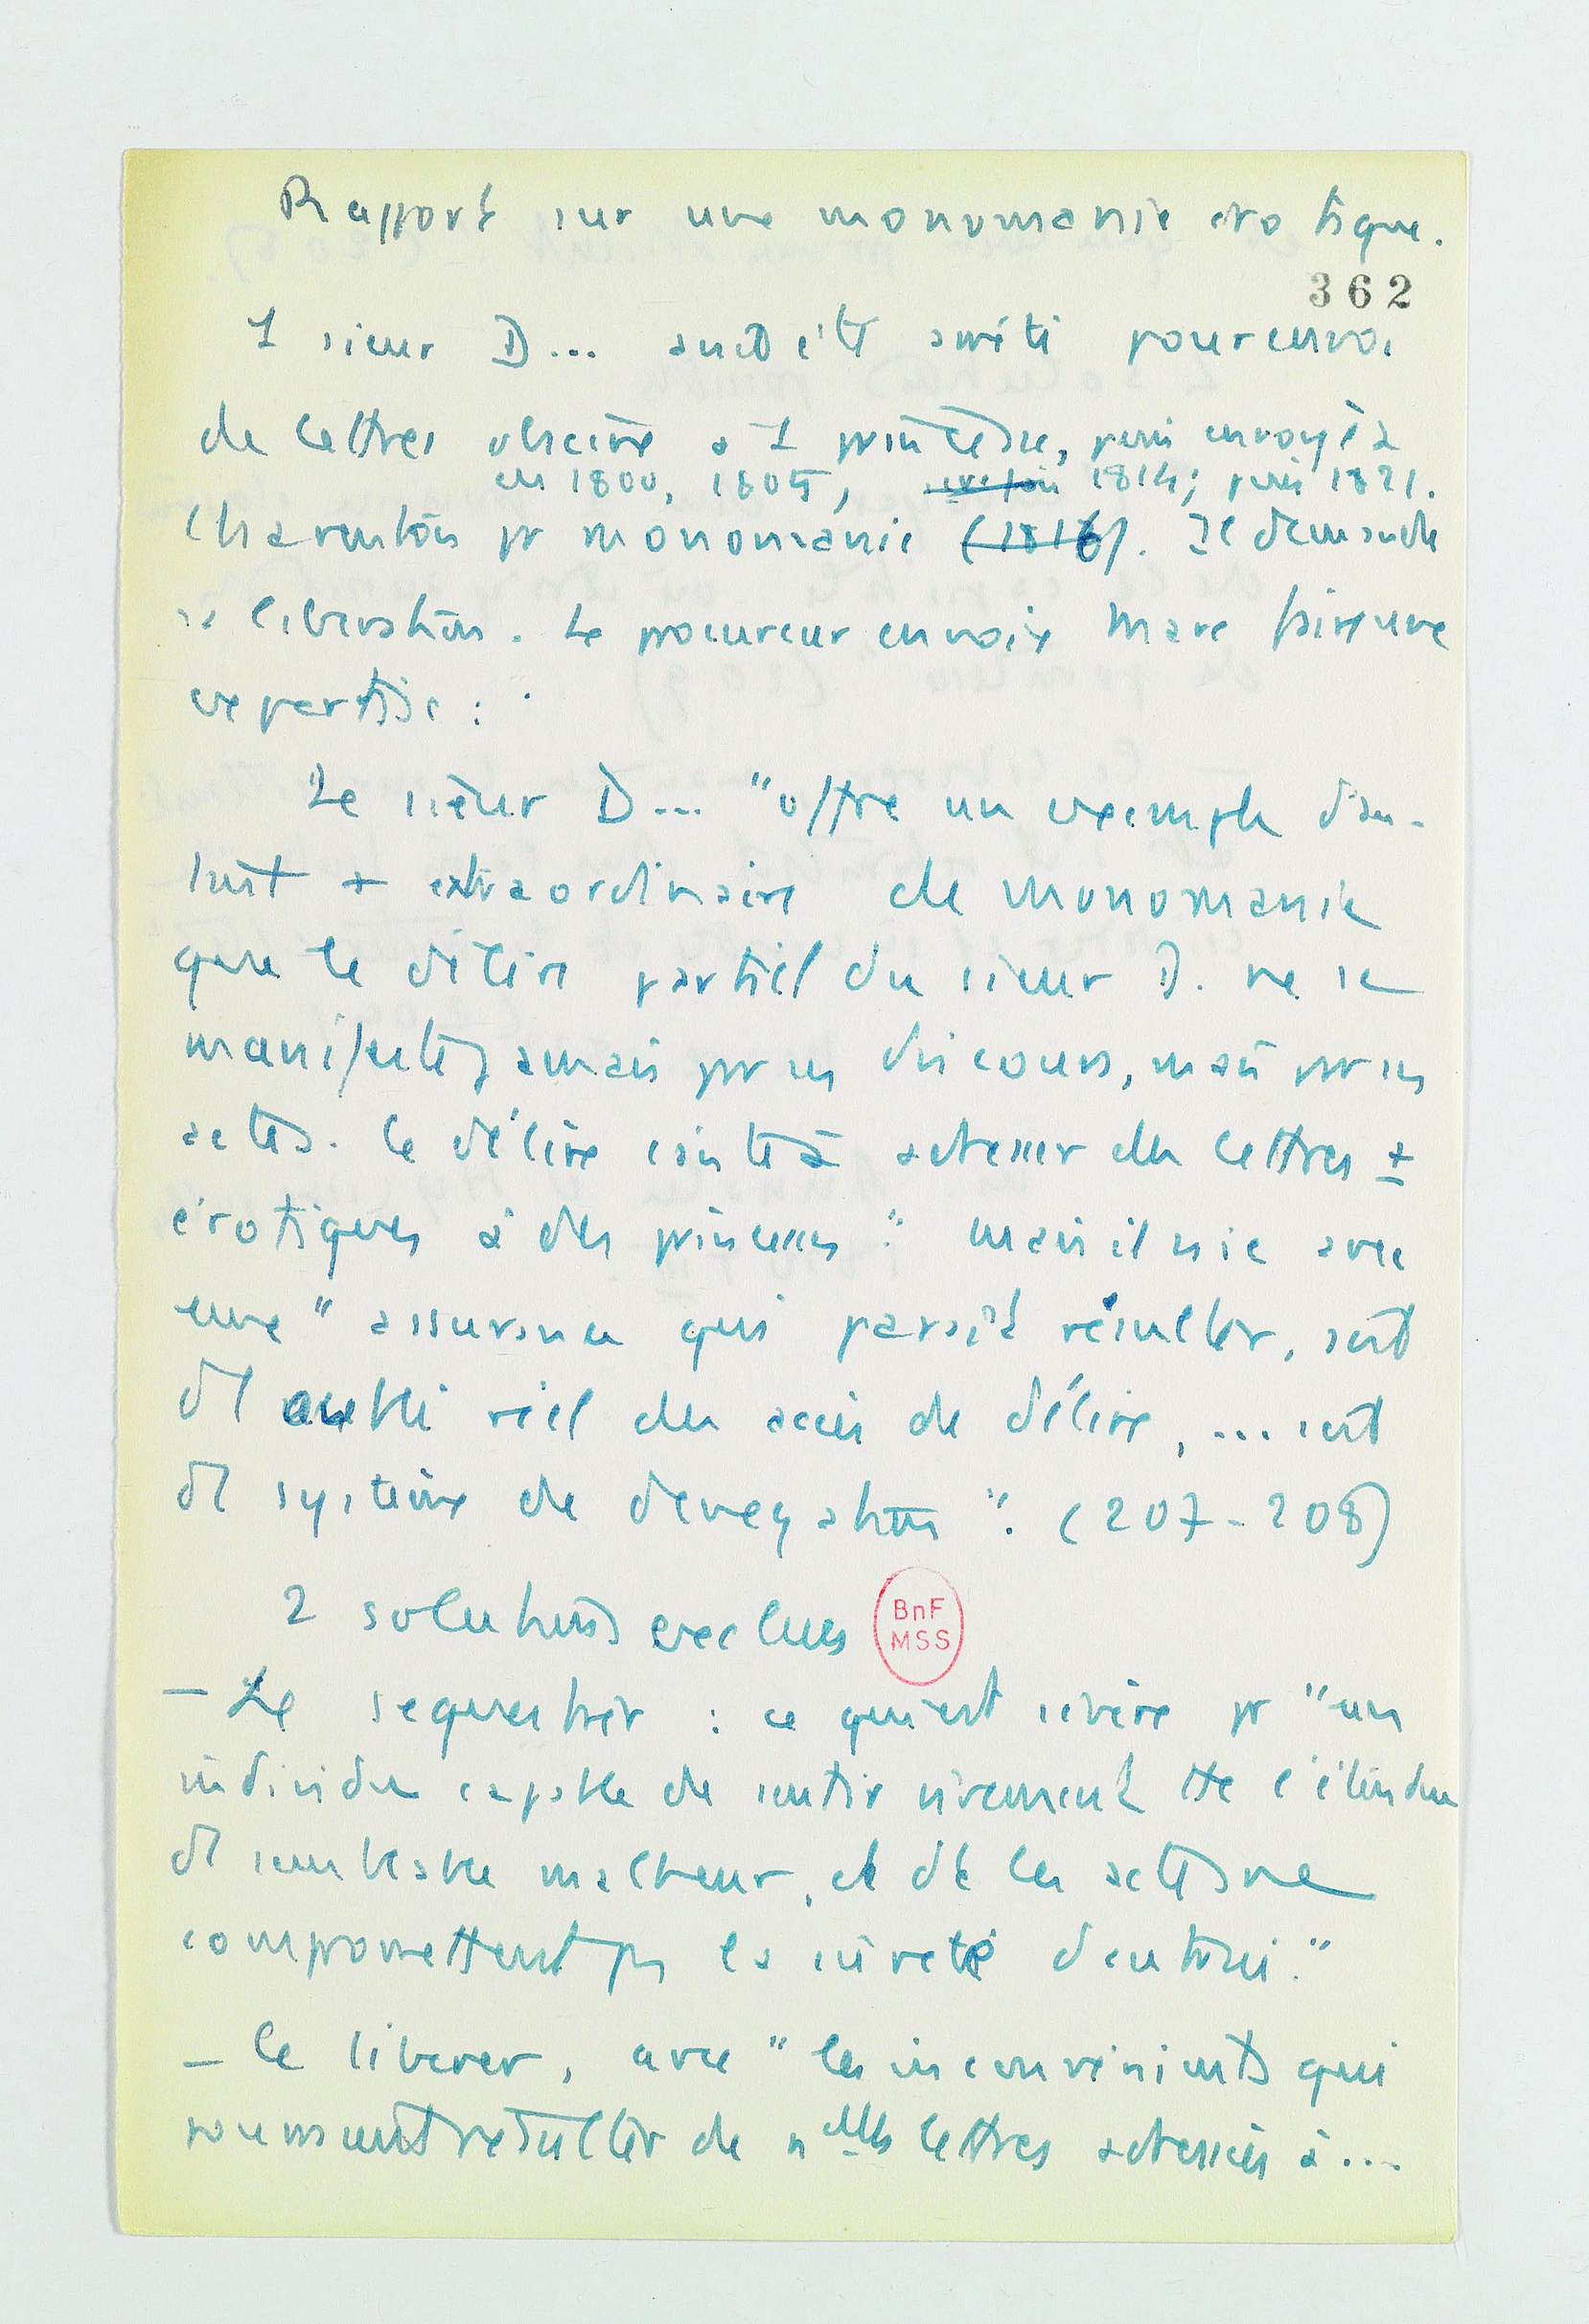 Rapport sur une monomanie érotique.
362
1 sieur D... avait été arrêté pour envoi
de lettres obscène à 1 princesse, puis envoyé à
en 1800, 1805, 1814; puis 1821.
Charenton pr monomanie (1816). Il demande
sa libération. Le procureur envoie Marc faire une
expertise :
Le sieur D... "offre un exemple d'au-
tant + extraordinaire de monomanie
que le délire partiel du sieur D. ne se
manifeste jamais par ses discours, mais par ses
actes. Le délire consiste à adresser des lettres ±
érotiques à des princesses". Mais il nie avec
une "assurance qui paraît résulter, soit
dl oubli réel des accès de délire, ... soit
dl système de dénégation". (207-208)
2 solutions exclues
BnF
MSS
– Le séquestrer : ce qui est sévère pr "un
individu capable de sentir vivement tte l'étendue
dl semblable malheur, et dt les actes ne
compromettent pas la sûreté d'autrui."
– le libérer, avec "les inconvénients qui
pourraient résulter de nelles lettres adressées à...